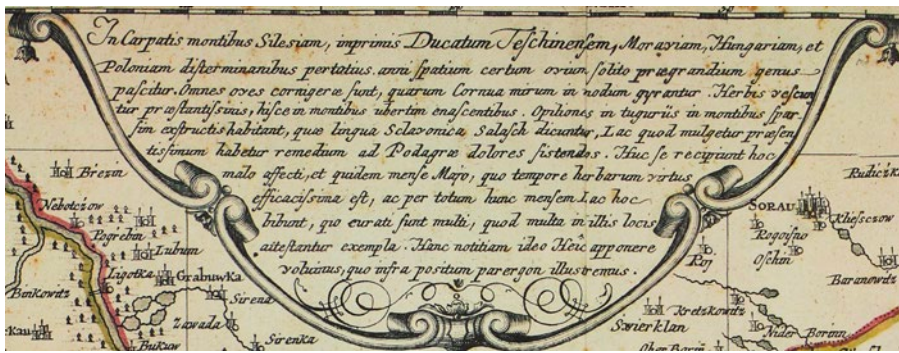 In Carpatis montibus Silesiam, imprimis Ducatum Teschinensem, Moraviam, Hungariam, et
Poloniam disterminanibus pertotius anni spatium certum ovium solito prægrandium genus
pascitur. Omnes oves cornigeræ sunt, quarum Cornua mirum in nodum gyrantur. Herbis vescun
tur præstantissimis, hisce in montibus ubertim enascentibus. Opiliones in tuguriis in montibus spar
sim exstructis habitant, quæ lingua Sclavonica Salasch dicuntur, Lac quod mulgetur præsen
tissimum habetur remedium ad Podagræ dolores sistendos. Huc se recipiunt hoc
malo affecti, et quidem mense Majo, quo tempore herbarum virtus
efficacissima est, ac per totum hunc mensem Lac hoc
bibunt, quo curati sunt multi, quod multa in illis locis
attestantur exempla. Hanc notitiam ideo Heic apponere
voluimus, quo infra positum parergon illustremus.
Brezin
Nebotczow
Pogrebin
Lubum
Ligotka
Grabuwka
Benkowitz
Sirena
Zawada
Sirenka
Bukuw
kau
SORAU
Rudiczka
Klesszow
Rogoisno
Oschin
Roj
Baranowitz
Kretzkowitz
Swierklan
Nider Borinn
Ober Borin